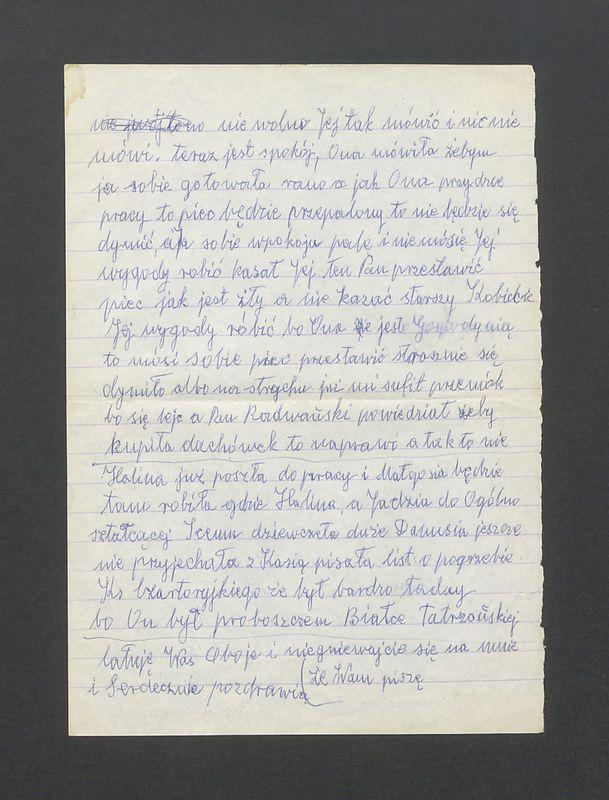 nie wolno Jej tak mówić i nic nie
mówi. teraz jest spokój, Ona mówiła żebym
ja sobie gotowała rano a jak Ona przydzie
pracy to piec będzie przepalony to nie będzie się
dymić, a ja sobie wpokoju palę i nie mósię Jej
wygody robić kazał Jej ten Pan przestawić
piec jak jest zły a nie kazać starszy Kobiecie
Jej wygody robić bo Ona jest Gospodynią
to mósi sobie piec przestawić strasznie się
dymiło albo na strychu już mi sufit przemók
bo się leje a Pan Radwański powiedział żeby
kupiła dachówek to naprawi a tak to nie
Halina już poszła do pracy i Małgosia będzie
tam robiła gdzie Halina, a Jadzia do Ogólno
sztatcącej Iceum dziewczęta duże Danusia jeszcze
nie przyjechała z Kasią pisała list o pogrzebie
Ks Czartoryjkiego że był bardzo ładny
bo On był proboszczem Białce Tatrzańskiej
całuję Was Oboje i niegniewajcie się na mnie
i Serdecznie pozdrawia (że Wam piszę